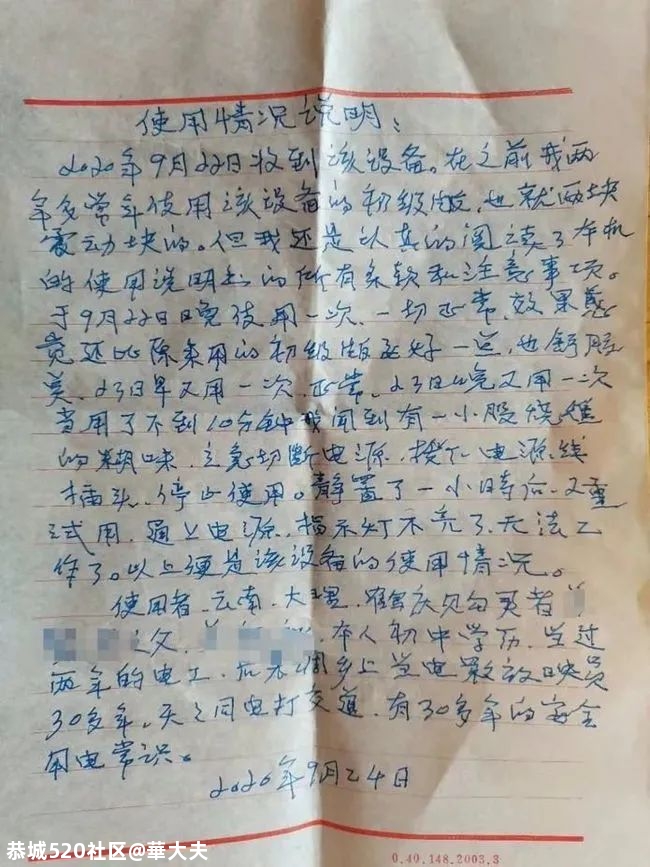 使用情况说明：
2020年9月22日收到该设备。在之前我两
年多常年使用该设备的初级版，也就两块
震动块的。但我还是认真的阅读了本机
的使用说明书的所有条款和注意事项。
于9月22日晚使用一次，一切正常，效果感
觉还比原来用的初级版还好一些，也舒服
些。23日早又用一次，正常。23日晚又用一次
当用了不到10分钟我闻到有一小股烧
的糊味，立急切断电源，拔下电源线
插头，停止使用。静置了一小时后，又重
试用，通上电源，指示灯不亮了，无法工
作了。以上便是该设备的使用情况。
使用者、云南、大理、购买者
之父，本人初中学历，当过
两年的电工，后来乡上当电影放映员
30多年，天天同电打交道，有30多年的安全
用电常识。
2020年9月24日
恭城520社区@華大夫
0.40.148.2003.3